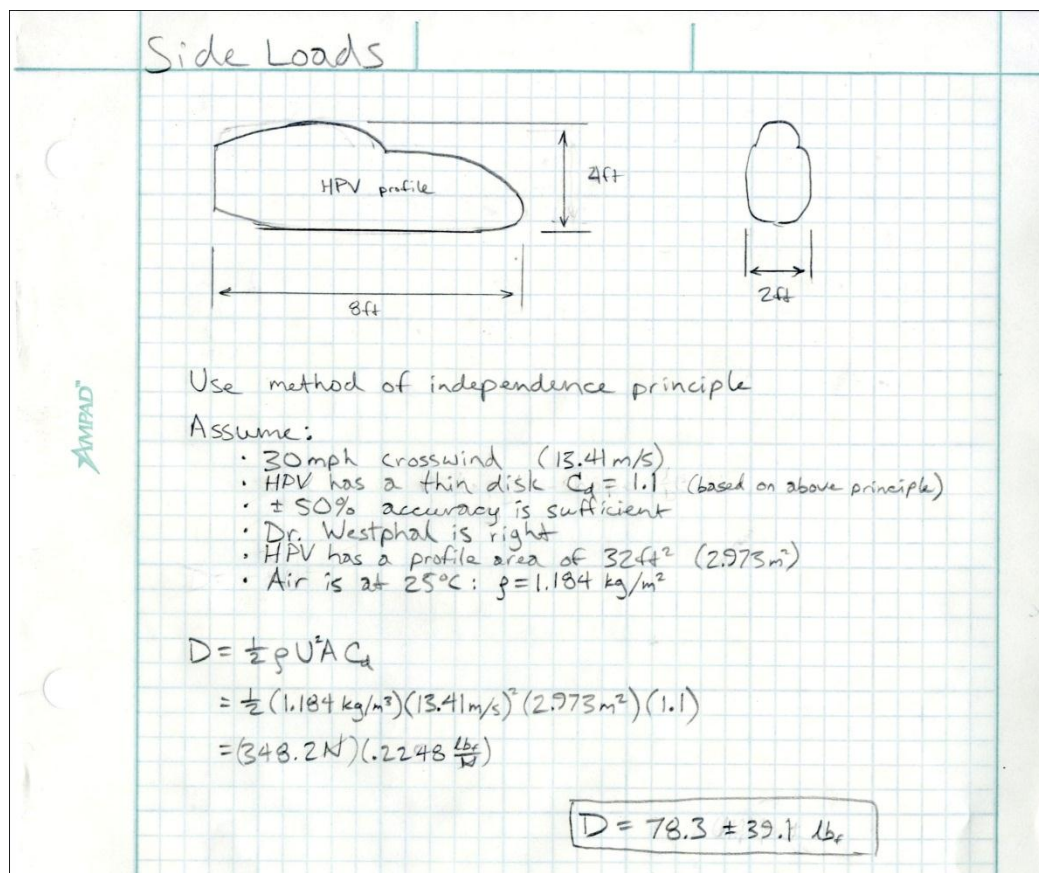 Side Loads
HPV profile
4ft
8ft
2ft
AMPAD™
Use method of independence principle
Assume:
· 30mph crosswind (13.41 m/s)
· HPV has a thin disk Cd = 1.1 (based on above principle)
· ± 50% accuracy is sufficient
· Dr. Westphal is right
· HPV has a profile area of 32ft² (2.973m²)
· Air is at 25°C: ρ=1.184 kg/m²
D = ½ρU²A Cd
= ½(1.184 kg/m³)(13.41m/s)²(2.973m²)(1.1)
=(348.2N)(.2248 lbf/N)
D = 78.3 ± 39.1 lbf